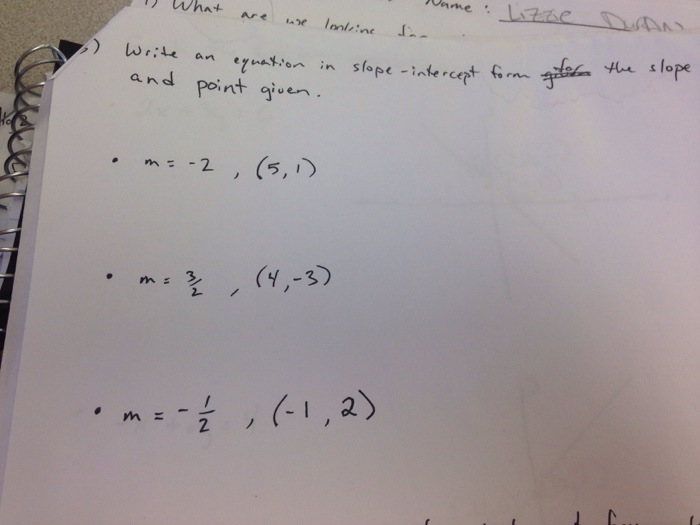 1) What are we looking for
Name : Lizzie
2) Write an equation in slope-intercept form for the slope
and point given.
• m = -2 , (5,1)
• m = 3/2 , (4,-3)
• m = -1/2 , (-1,2)